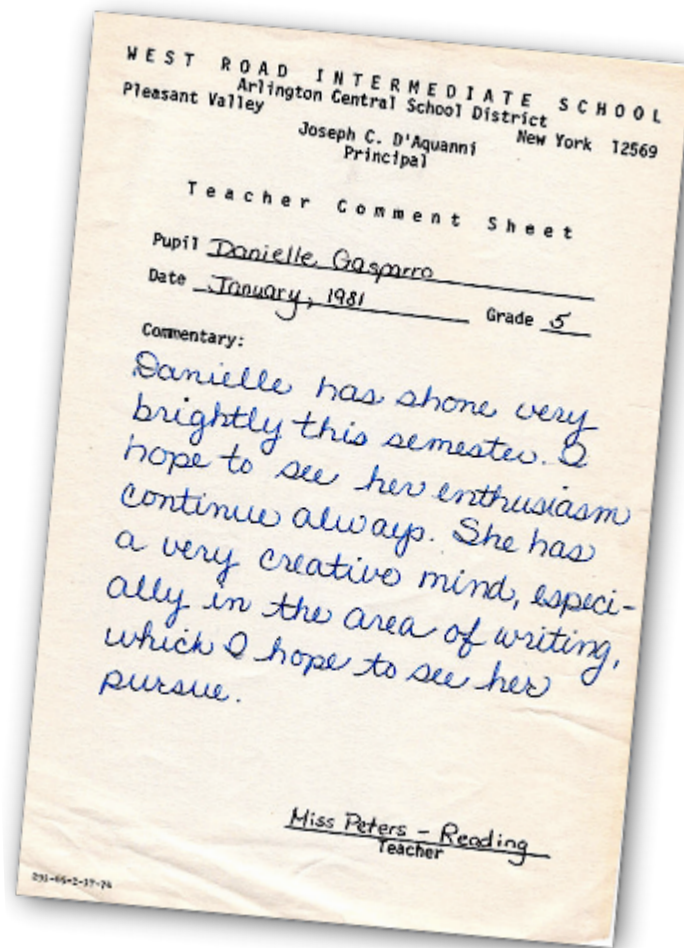 WEST ROAD INTERMEDIATE SCHOOL
Arlington Central School District
Pleasant Valley New York 12569
Joseph C. D'Aquanni
Principal
Teacher Comment Sheet
Pupil Danielle Gasparro
Date January, 1981 Grade 5
Commentary:
Danielle has shone very
brightly this semester. I
hope to see her enthusiasm
continue always. She has
a very creative mind, especi-
ally in the area of writing,
which I hope to see her
pursue.
Miss Peters - Reading
Teacher